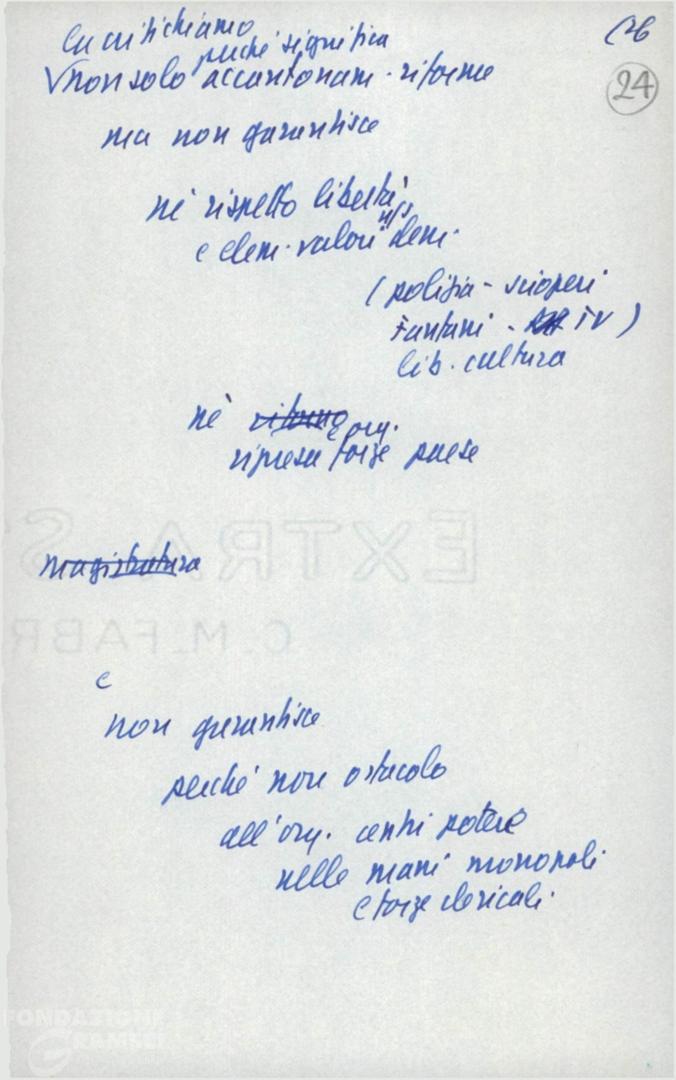 La critichiamo (26
perché significa 24
non solo accantonam. riforme
ma non garantisce
né rispetto libertà
e elem. valori dem.
(polizia - scioperi
Fanfani - TV)
lib. cultura
né riforme e org.
ripresa forze paese
EXTRA S
magistratura
C.M.FABR
e
non garantisce
perché non ostacolo
all'org. centri potere
nelle mani monopoli
e forze clericali.
FONDAZIONE
GRAMSCI